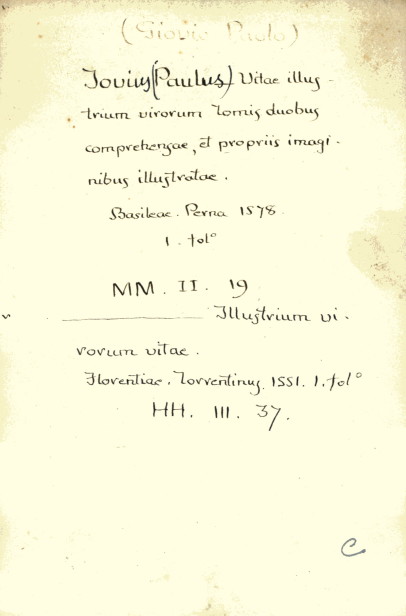 (Giovio Paolo)
Jovius (Paulus) Vitae illus-
trium virorum tomis duobus
comprehensae, et propriis imagi-
nibus illustratae.
Basileae. Perna 1578.
1. fol°
MM. II. 19
——— Illustrium vi-
rorum vitae.
Florentiae. Torrentinus. 1551. 1. fol°
HH. III. 37.
C